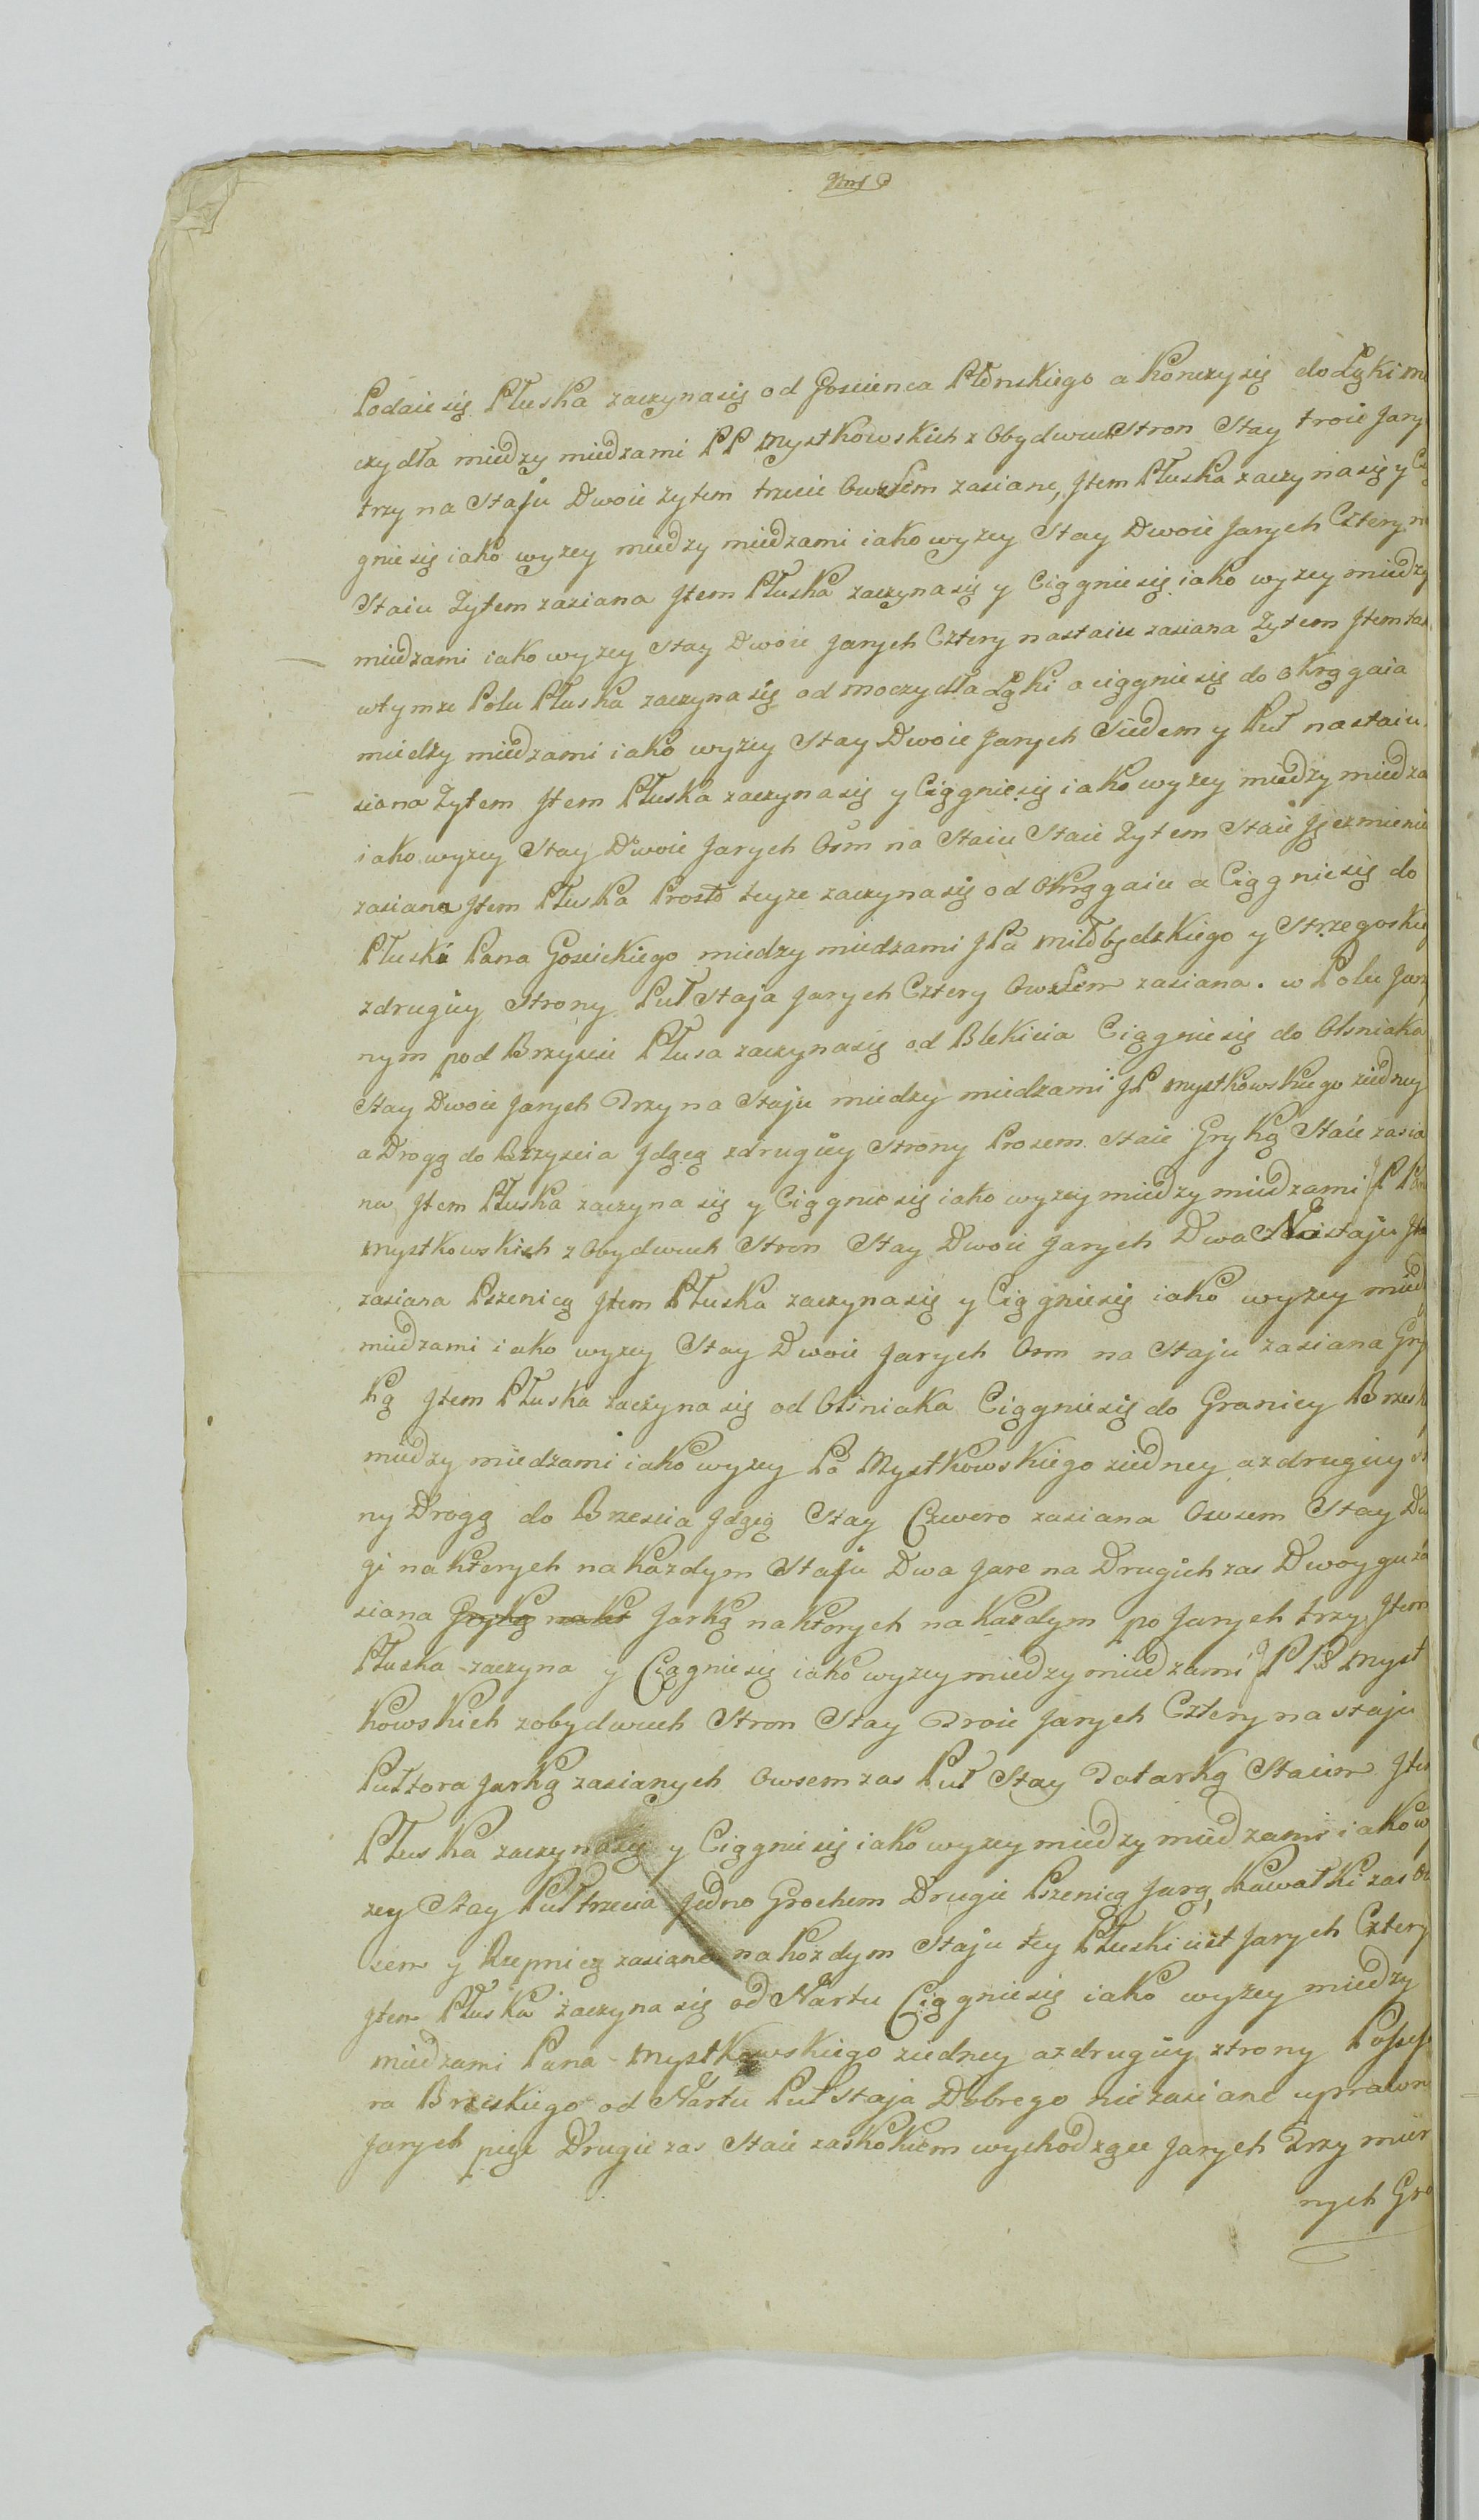 Podaie się Płuska zaczyna się od Goscienca Płonskiego a Konczy się do Łąki mo
czydła miedzy miedzami PP Mystkowskich z Obydwuch Stron Stay troie Jary
trzy na Staju Dwoie zytem trzecie Owsem zasiane, Jtem Płuska zaczyna się y Cią
gnie się iako wyzey miedzy miedzami iako wyzey Stay Dwoie Jarych Cztery na
Staiu Zytem zasiana Jtem Płuska zaczyna się y Ciągnie się iako wyzey miedzy
miedzami iako wyzey Stay Dwoie Jarych Cztery na staiu zasiana Zytem Jtem
w tymze Polu Płuska zaczyna się od moczydła Łąki a ciągnie się do okrągaia
miedzy miedzami iako wyzey Stay Dwoie Jarych Siedem y Puł na staiu
siana Zytem Jtem Płuska zaczyna się y Ciągnie się iako wyzey miedzy miedza
iako wyzey Stay Dwoie Jarych Osm na Staiu Staie Zytem Staie Jęczmienie
zasiana Jtem Płuska Prosto teyze zaczyna się od Okrągaiu a Ciągnie się do
Płuski Pana Gosickiego miedzy miedzami JPa Miłobędzkiego y Strzegoskie
z drugiey Strony Puł Staja Jarych Cztery Owsem zasiana. w Polu Jarz
nym pod Brzyscie Płusa zaczyna się od Blekicia Ciągnie się do Olsniaka
Stay Dwoie Jarych Trzy na Staju miedzy miedzami JP Mystkowskiego ziedney
a Drogą do Brzyscia Jdącą z drugiey Strony Prosem Staie Gryką Staie zasia
na Jtem Płuska zaczyna się y Ciągnie się iako wyzey miedzy miedzami JP
Mystkowskich z Obydwuch Stron Stay Dwoie Jarych Dwa Na staju
zasiana Pszenicą Jtem Płuska zaczyna się y Ciągnie się iako wyzey mied
miedzami iako wyzey Stay Dwoie Jarych Osm na Staju zasiana Gry
ką Jtem Płuska zaczyna się od Olsniaka Ciągnie się do Granicy Brzesk
miedzy miedzami iako wyzey Pa Mystkowskiego ziedney a z drugiey
ny Drogą do Brzescia Jdącą Stay Czworo zasiana Owsem Stay Dw
gi na kterych na Kazdym Staju Dwa Jare na Drugich zas Dwoygu za
siana Gryką na kt Jarką na ktorych na Kazdym po Jarych trzy Jtem
Płuska zaczyna y Ciągnie się iako wyzey miedzy miedzami JPP Myst
kowskich z obydwuch Stron Stay Troie Jarych Cztery na staju
Pułtora Jarką zasianych Owsem zas Puł Stay Tatarką Staiem Jtem
Płuska zaczyna się y Ciągnie się iako wyzey miedzy miedzami iako w
zey Stay Pułtrzecia Jedno Grochem Drugie Pszenicą Jarą, Kawałki zas Ow
sem y Rzepnicą zasiane na kozdym Staju tey Płuski iest Jarych Cztery
Jtem Płuska zaczyna się od Nartu Ciągnie się iako wyzey miedzy
miedzami Pana Mystkowskiego ziedney a z drugiey strony Possess
ra Brzeskiego od Nartu Puł Staja Dobrego nie zasiane uprawn
Jarych pięc Drugie zas Staie zaskokiem wychodzące Jarych Trzy mier
nych Gro